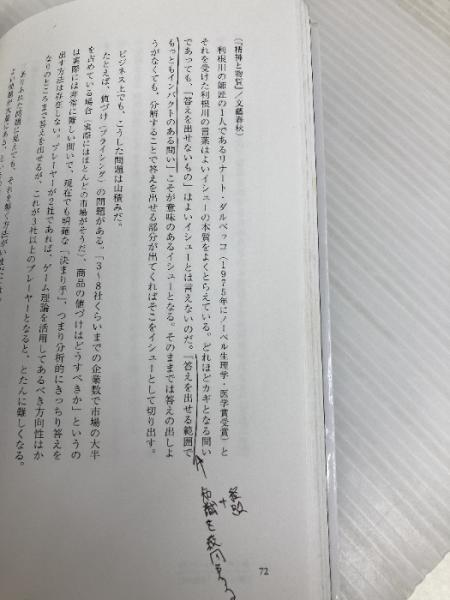 (『精神と物質』/文藝春秋)
利根川の師匠の1人であるリナート・ダルベッコ(1975年にノーベル生理学・医学賞受賞)と
それを受けた利根川の言葉はよいイシューの本質をよくとらえている。どれほどカギとなる問い
であっても、「答えを出せないもの」はよいイシューとは言えないのだ。「答えを出せる範囲で
もっともインパクトのある問い」こそが意味のあるイシューとなる。そのままでは答えの出しよ
うがなくても、分解することで答えを出せる部分が出てくればそこをイシューとして切り出す。
ビジネス上でも、こうした問題は山積みだ。
たとえば、値づけ(プライシング)の問題がある。「3〜8社くらいまでの企業数で市場の大半
を占めている場合(実際にはほとんどの市場がそうだ)、商品の値づけはどうすべきか」というの
は実際には非常に難しい問いで、現在でも明確な「決まり手」、つまり分析的にきっちり答えを
出す方法は存在しない。プレーヤーが2社であれば、ゲーム理論を活用してあるべき方向性はか
なりのところまで答えを出せるが、これが3社以上のプレーヤーとなると、とたんに難しくなる。
ありふれた問題に見えても、それを解く方法がいまだに
72